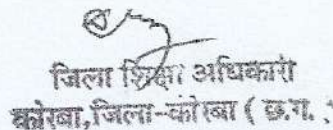 जिला शिक्षा अधिकारी
कोरबा, जिला-कोरबा ( छ.ग. )